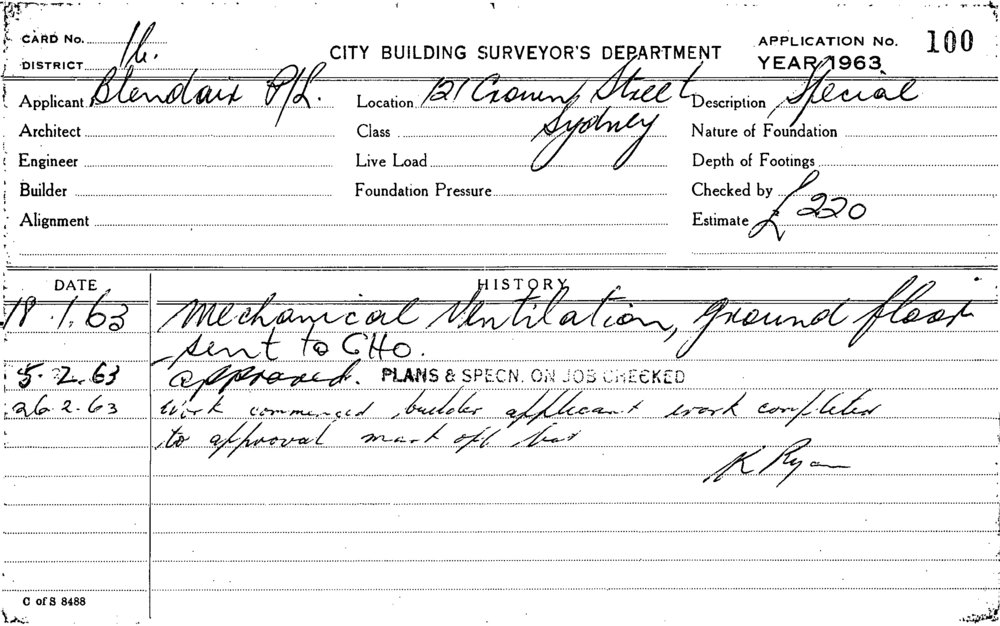 CARD No. 16.
DISTRICT
CITY BUILDING SURVEYOR'S DEPARTMENT
APPLICATION No. 100
YEAR 1963
Applicant Blendair P/L. Location 121 Crown Street Description Special
Sydney
Architect Class Nature of Foundation
Engineer Live Load Depth of Footings
Builder Foundation Pressure Checked by
Alignment Estimate £220
DATE HISTORY
18.1.63 Mechanical Ventilation, ground floor
sent to CHO.
5.2.63 approved. PLANS & SPECN. ON JOB CHECKED
26.2.63 Work commenced builder applicant work completed
to approval mark off
K Ryan
C of S 8488